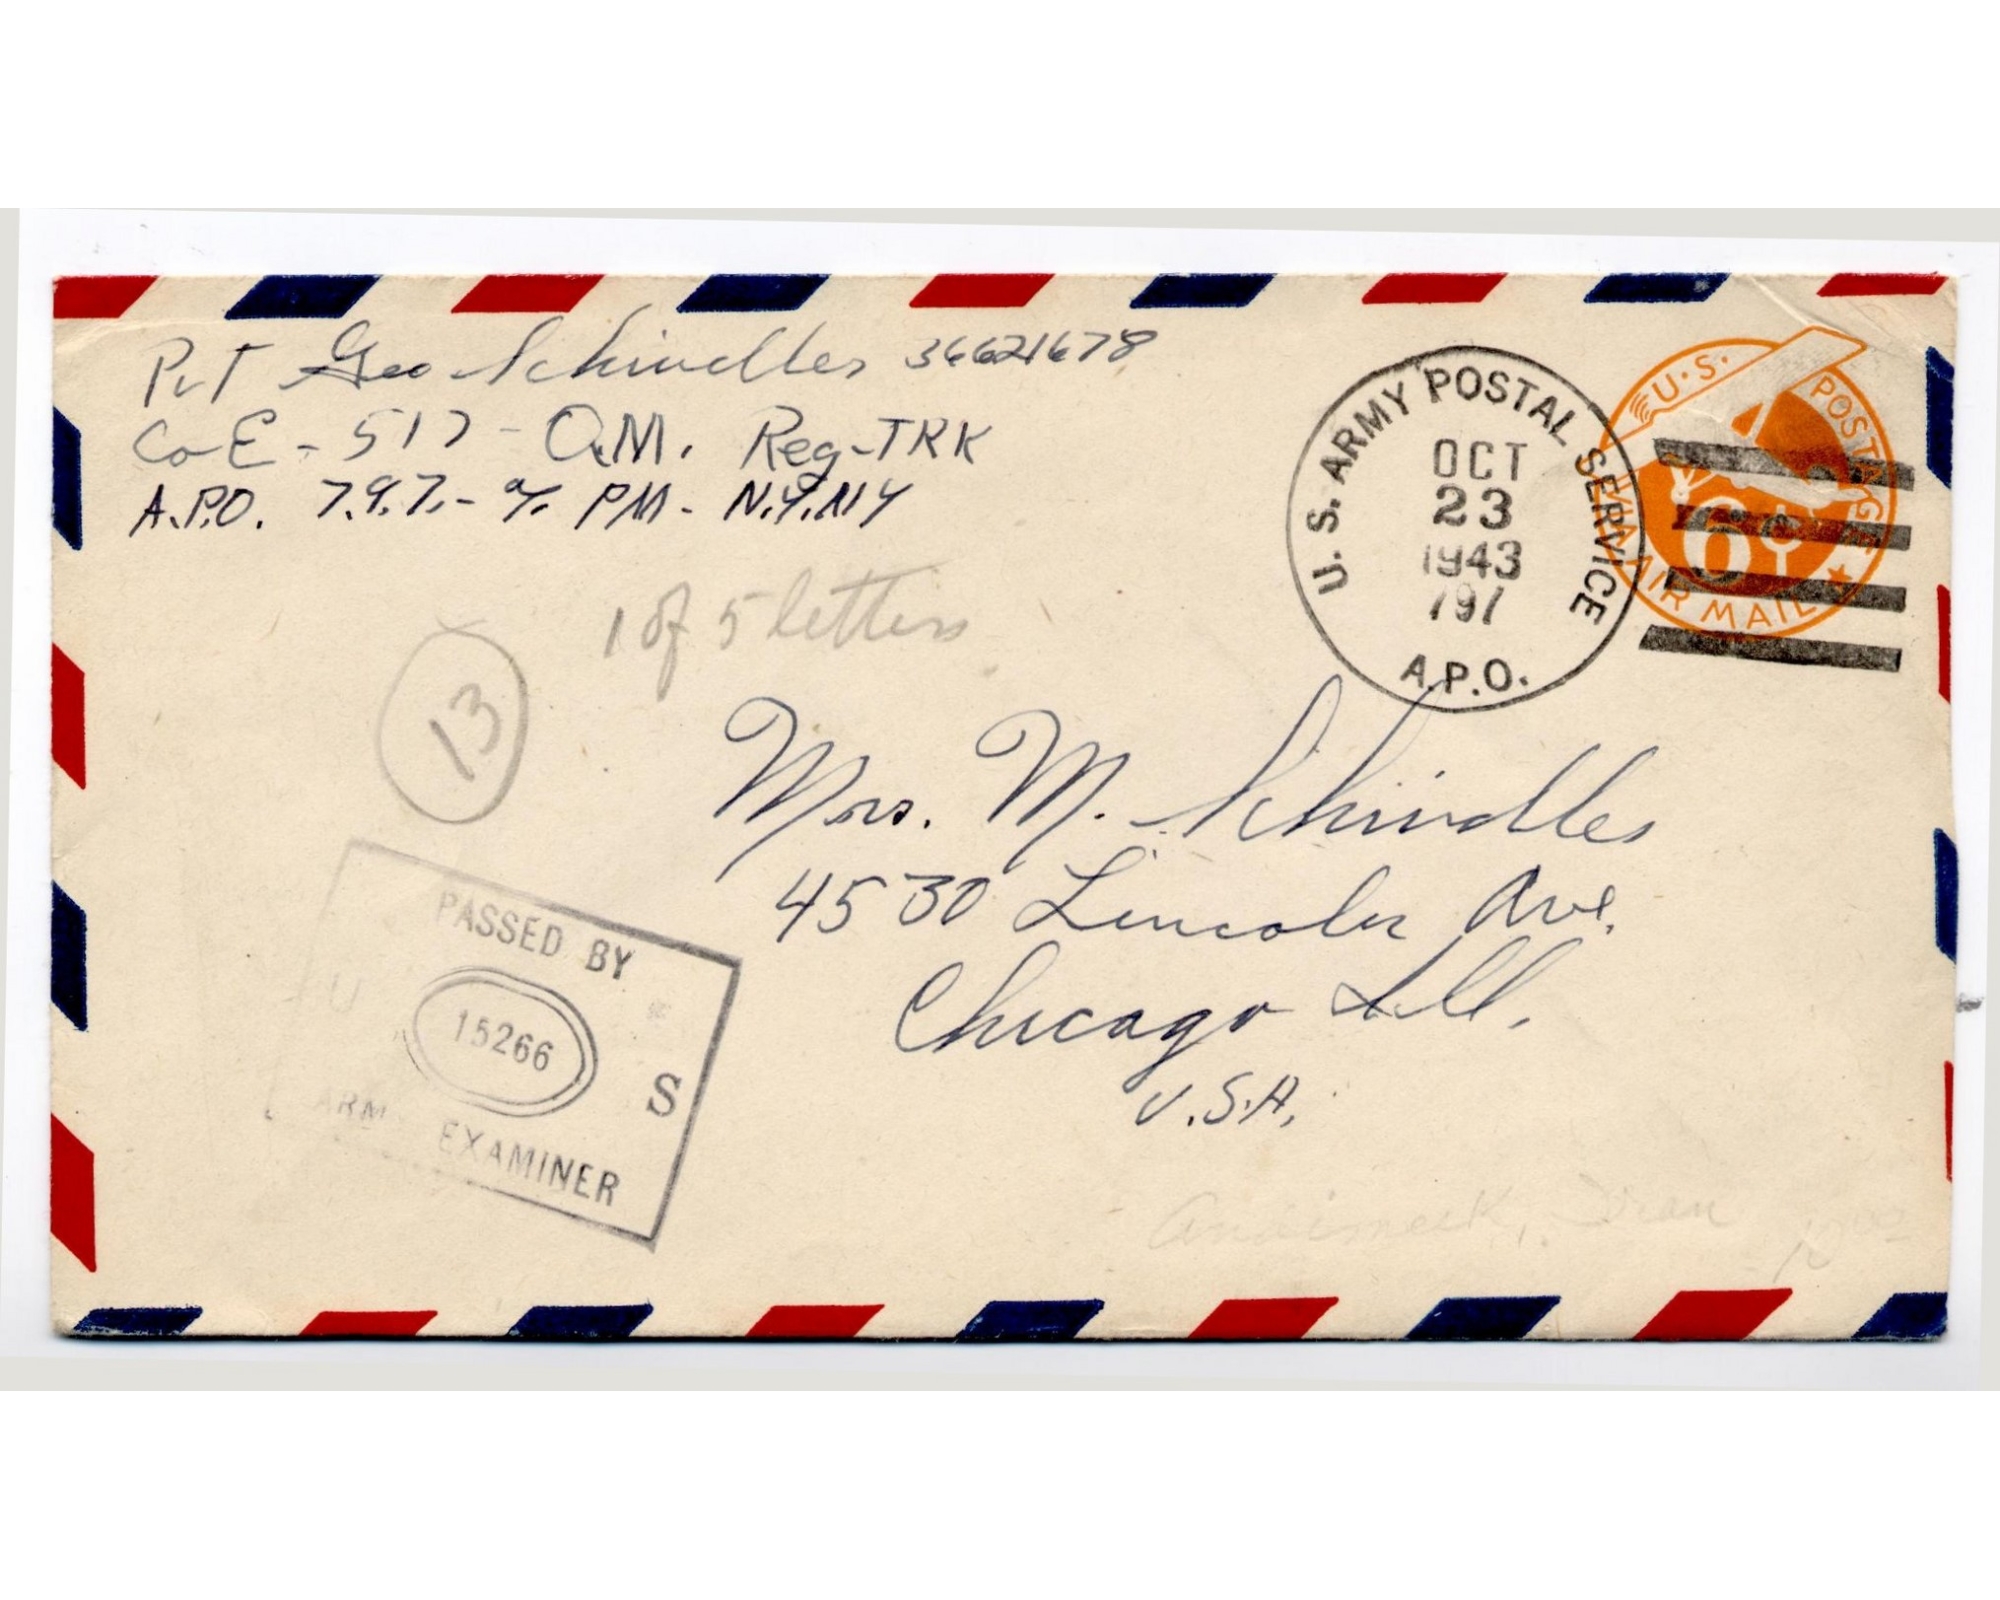 Pvt Geo Schindler 36621678
Co E - 517 - Q.M. Reg-TRK
A.P.O. 7.9.7. - % PM - N.Y. NY
U.S. ARMY POSTAL SERVICE
OCT
23
1943
797
A.P.O.
U.S. POSTAGE
6¢
VIA AIR MAIL
1 of 5 letters
13
Mrs. M. Schindler
4530 Lincoln Ave.
Chicago Ill.
U.S.A.
PASSED BY
U S
15266
ARM EXAMINER
Andimeshk, Iran